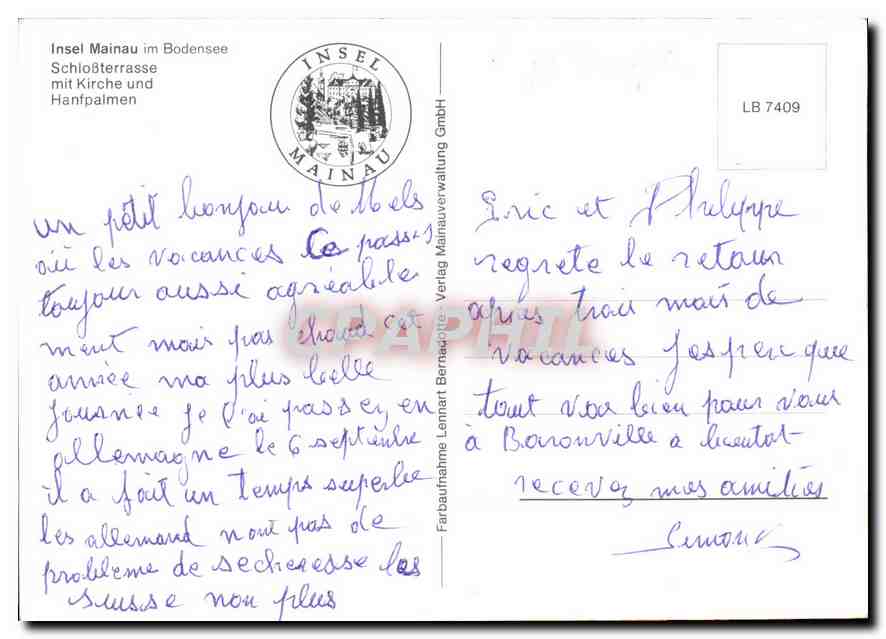 Insel Mainau im Bodensee
Schloßterrasse
mit Kirche und
Hanfpalmen
INSEL
MAINAU
LB 7409
Farbaufnahme Lennart Bernadotte · Verlag Mainauverwaltung GmbH
CPAPHIL
un petit bonjour de Mels
où les vacances Ce passes
toujour aussi agréable
ment mais pas chaud cet
année ma plus belle
journée je l'ai passer en
allemagne le 6 septembre
il a fait un temps superbe
les allemand nont pas de
problème de secheresse les
suisse non plus
Eric et Philippe
regrete le retour
apres trois mois de
vacances jesper que
tout vas bien pour vous
à Baronville a bientot
recevez mes amitiés
Simone